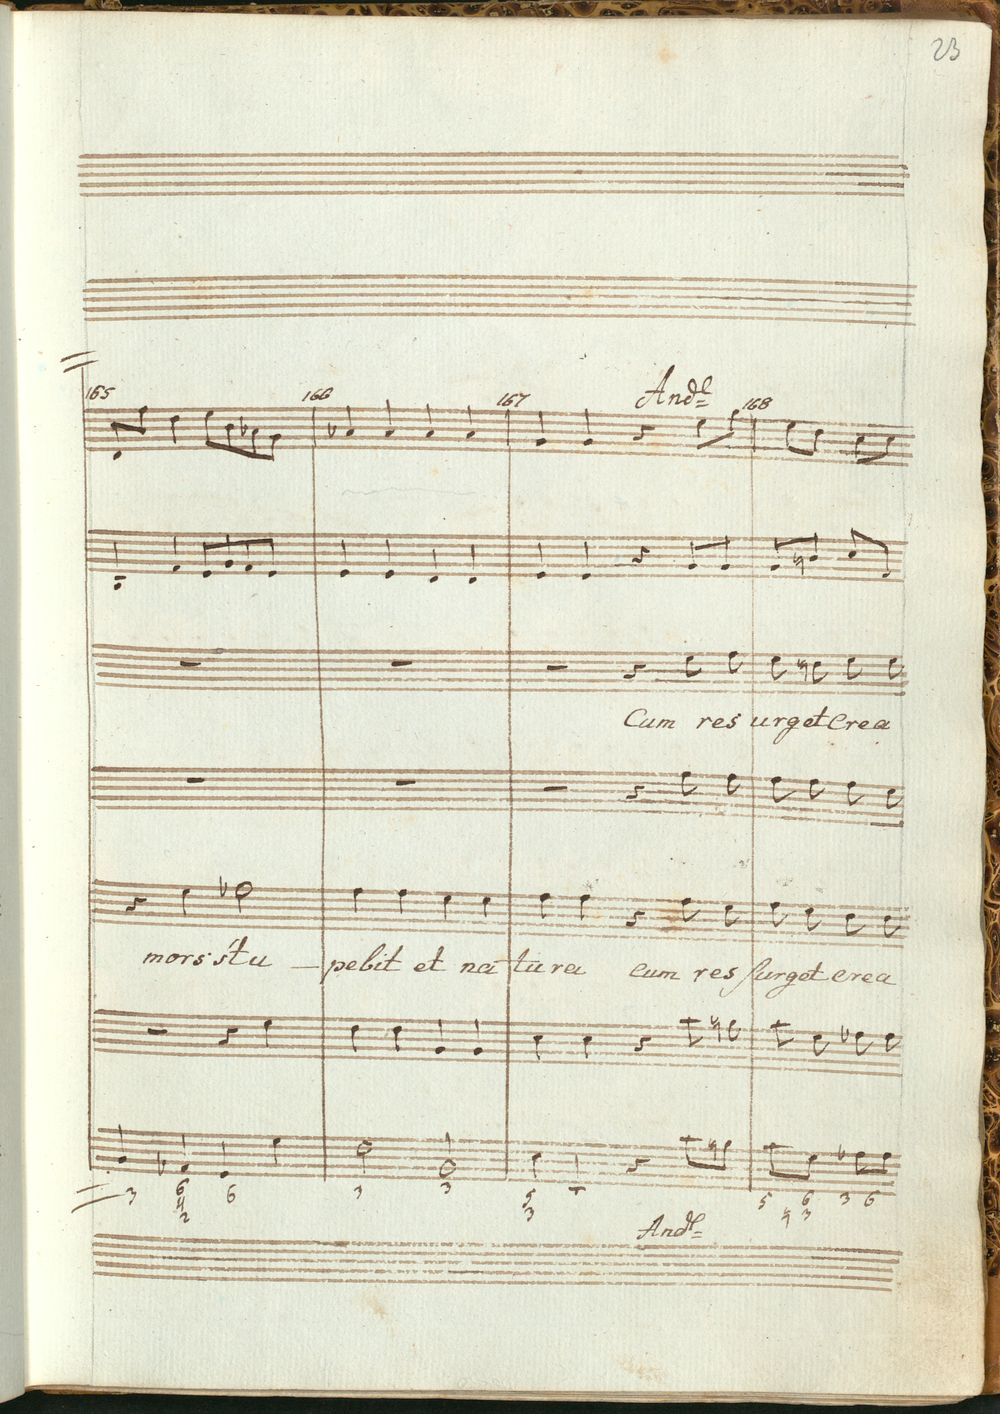 23
165 166 167 And.e 168
Cum res urget Crea
mors stu - pebit et na tura cum res surget crea
3 6 4 2 6 3 3 5 3 5 4 6 3 3 6
And.e